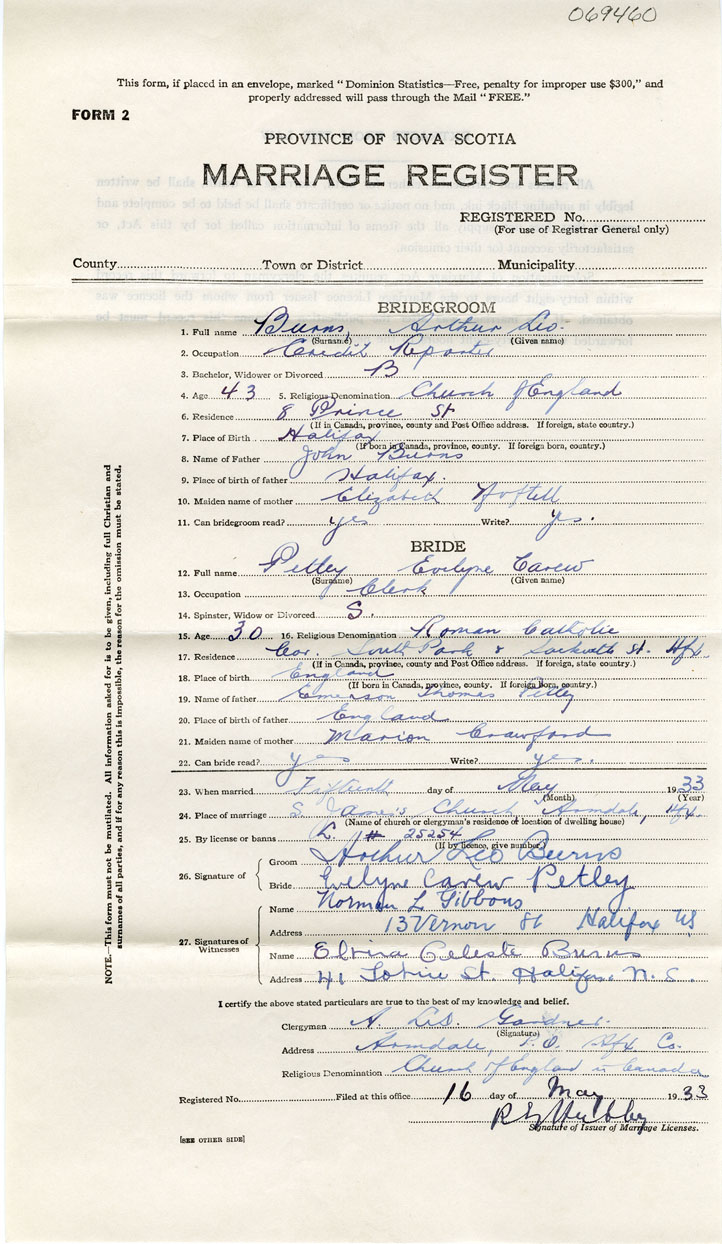 069460
This form, if placed in an envelope, marked "Dominion Statistics—Free, penalty for improper use $300," and
properly addressed will pass through the Mail "FREE."
FORM 2
PROVINCE OF NOVA SCOTIA
MARRIAGE REGISTER
REGISTERED No.
(For use of Registrar General only)
County Town or District Municipality
BRIDEGROOM
1. Full name Burns, Arthur Leo.
(Surname) (Given name)
2. Occupation Credit Reporter
3. Bachelor, Widower or Divorced B
4. Age 43 5. Religious Denomination Church of England
6. Residence 8 Prince St
(If in Canada, province, county and Post Office address. If foreign, state country.)
7. Place of Birth Halifax
(If born in Canada, province, county. If foreign born, country.)
8. Name of Father John Burns
9. Place of birth of father Halifax.
10. Maiden name of mother Elizabeth
11. Can bridegroom read? yes Write? yes.
BRIDE
12. Full name Petley Evelyne Carew
(Surname) (Given name)
13. Occupation Clerk
14. Spinster, Widow or Divorced S.
15. Age 30 16. Religious Denomination Roman Catholic
17. Residence Cor. South Park & Sackville St. Hfx.
(If in Canada, province, county and Post Office address. If foreign, state country.)
18. Place of birth England
(If born in Canada, province, county. If foreign born, country.)
19. Name of father Emerson Thomas Petley
20. Place of birth of father England
21. Maiden name of mother Marion Crawford
22. Can bride read? yes Write? yes.
23. When married Fifteenth day of May 1933
(Month) (Year)
24. Place of marriage S. James's Church, Armdale, Hfx.
(Name of church or clergyman's residence or location of dwelling house)
25. By license or banns L. # 25254
(If by licence, give number)
26. Signature of
Groom Arthur Leo Burns
Bride Evelyne Carew Petley
27. Signatures of Witnesses
Name Norman L Gibbons
Address 13 Vernon St Halifax NS
Name Elvira Celeste Burns
Address 41 St. Halifax, N.S.
I certify the above stated particulars are true to the best of my knowledge and belief.
Clergyman A. Gardner.
(Signature)
Address Armdale, P.O. Hfx Co.
Religious Denomination Church of England in Canada
Registered No. Filed at this office 16 day of May 1933
Signature of Issuer of Marriage Licenses.
[SEE OTHER SIDE]
NOTE.—This form must not be mutilated. All information asked for is to be given, including full Christian and
surnames of all parties, and if for any reason this is impossible, the reason for the omission must be stated.